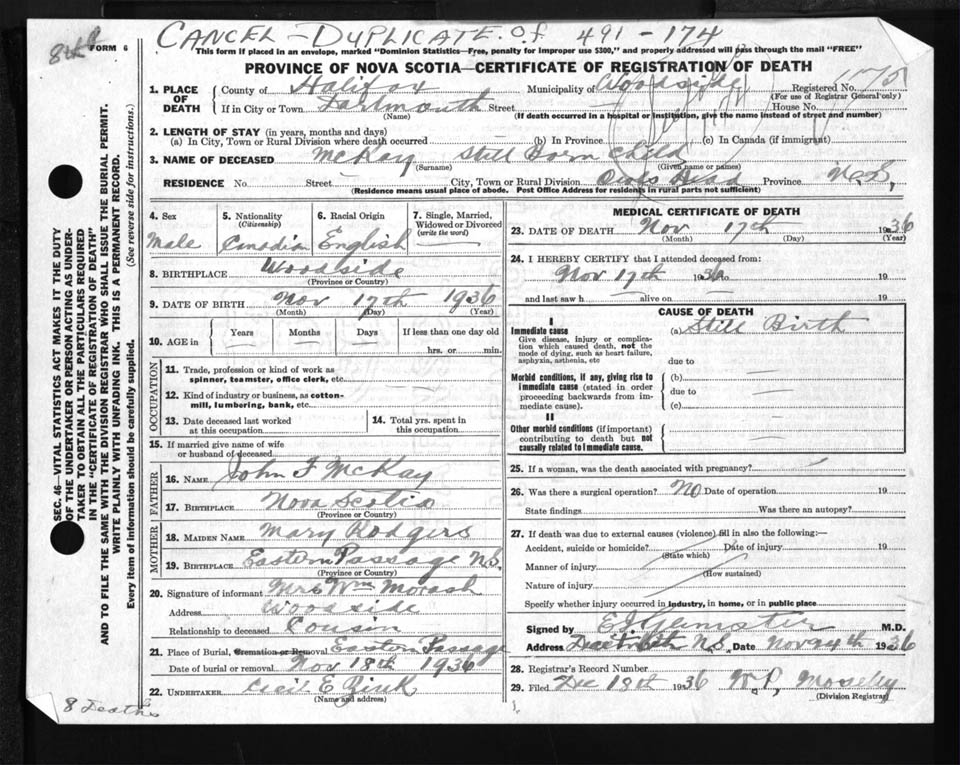 CANCEL - DUPLICATE. of 491 - 174
8th
FORM 6
This form if placed in an envelope, marked "Dominion Statistics—Free, penalty for improper use $300," and properly addressed will pass through the mail "FREE"
PROVINCE OF NOVA SCOTIA—CERTIFICATE OF REGISTRATION OF DEATH
1. PLACE OF DEATH
County of Halifax Municipality of Woodside Registered No. 175
(For use of Registrar General only)
If in City or Town Dartmouth Street House No.
(Name) (If death occurred in a hospital or institution, give the name instead of street and number)
2. LENGTH OF STAY (in years, months and days)
(a) In City, Town or Rural Division where death occurred (b) In Province (c) In Canada (if immigrant)
3. NAME OF DECEASED McKay Still Born Child
(Surname) (Given name or names)
RESIDENCE No. Street City, Town or Rural Division Province N.S,
(Residence means usual place of abode. Post Office Address for residents in rural parts not sufficient)
4. Sex
Male
5. Nationality
(Citizenship)
Canadian
6. Racial Origin
English
7. Single, Married, Widowed or Divorced
(write the word)
8. BIRTHPLACE Woodside
(Province or Country)
9. DATE OF BIRTH Nov 17th 1936
(Month) (Day) (Year)
10. AGE in
Years Months Days If less than one day old
hrs. or min.
OCCUPATION
11. Trade, profession or kind of work as
spinner, teamster, office clerk, etc.
12. Kind of industry or business, as cotton-
mill, lumbering, bank, etc.
13. Date deceased last worked
at this occupation
14. Total yrs. spent in
this occupation
15. If married give name of wife
or husband of deceased
FATHER
16. NAME John F McKay
17. BIRTHPLACE Nova Scotia
(Province or Country)
MOTHER
18. MAIDEN NAME Mary Rodgers
19. BIRTHPLACE Eastern Passage N.S.
(Province or Country)
20. Signature of informant Mrs Wm Morash
Address Woodside
Relationship to deceased Cousin
21. Place of Burial, Cremation or Removal Eastern Passage
Date of burial or removal Nov 18th 1936
22. UNDERTAKER Cecil E Zink
(Name and address)
MEDICAL CERTIFICATE OF DEATH
23. DATE OF DEATH Nov 17th 1936
(Month) (Day) (Year)
24. I HEREBY CERTIFY that I attended deceased from:
Nov 17th 1936 to 19
and last saw h alive on 19
CAUSE OF DEATH
I
Immediate cause
Give disease, injury or complica-
tion which caused death, not the
mode of dying, such as heart failure,
asphyxia, asthenia, etc
(a) Still Birth
due to
Morbid conditions, if any, giving rise to
immediate cause (stated in order
proceeding backwards from im-
mediate cause).
(b)
due to
(c)
II
Other morbid conditions (if important)
contributing to death but not
causally related to immediate cause.
25. If a woman, was the death associated with pregnancy?
26. Was there a surgical operation? NO Date of operation 19
State findings Was there an autopsy?
27. If death was due to external causes (violence) fill in also the following:—
Accident, suicide or homicide? Date of injury 19
(State which)
Manner of injury
(How sustained)
Nature of injury
Specify whether injury occurred in industry, in home, or in public place
Signed by M.D.
Address N.S. Date Nov 24th 1936
28. Registrar's Record Number
29. Filed Dec 18th 1936 W.P, Moseley
(Division Registrar)
8 Deaths
SEC. 46—VITAL STATISTICS ACT MAKES IT THE DUTY
OF THE UNDERTAKER OR PERSON ACTING AS UNDER-
TAKER TO OBTAIN ALL THE PARTICULARS REQUIRED
IN THE "CERTIFICATE OF REGISTRATION OF DEATH"
AND TO FILE THE SAME WITH THE DIVISION REGISTRAR WHO SHALL ISSUE THE BURIAL PERMIT.
WRITE PLAINLY WITH UNFADING INK. THIS IS A PERMANENT RECORD.
Every item of information should be carefully supplied. (See reverse side for instructions.)